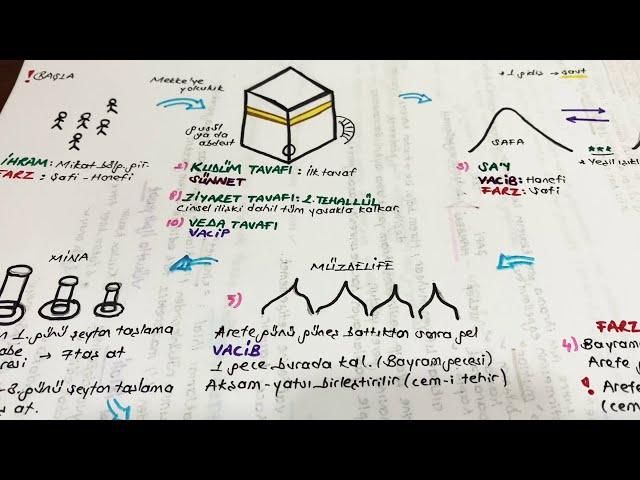 ! BAŞLA
Mekke'ye
yolculuk
* 1 gidiş → şavt
gusül
ya da
abdest
SAFA
***
* Yeşil ışıklı
İHRAM: Mikat bölg. gir.
FARZ: Şafi - Hanefi
2) KUDÜM TAVAFI: ilk tavaf
SÜNNET
8) ZİYARET TAVAFI: 2. TEHALLÜL
Cinsel ilişki dahil tüm yasaklar kalkar.
10) VEDA TAVAFI
VACİP
3) SA'Y
VACİB: Hanefi
FARZ: Şafi
MİNA
1. günü şeytan taşlama
→ 7 taş at
günü şeytan taşlama
at.
MÜZDELİFE
5)
Arefe günü güneş battıktan sonra gel
VACİB
1 gece burada kal. (Bayram gecesi)
Akşam-yatsı birleştirilir (cem-i tehir)
FARZ
4) Bayram
Arefe
! Arefe
(cem